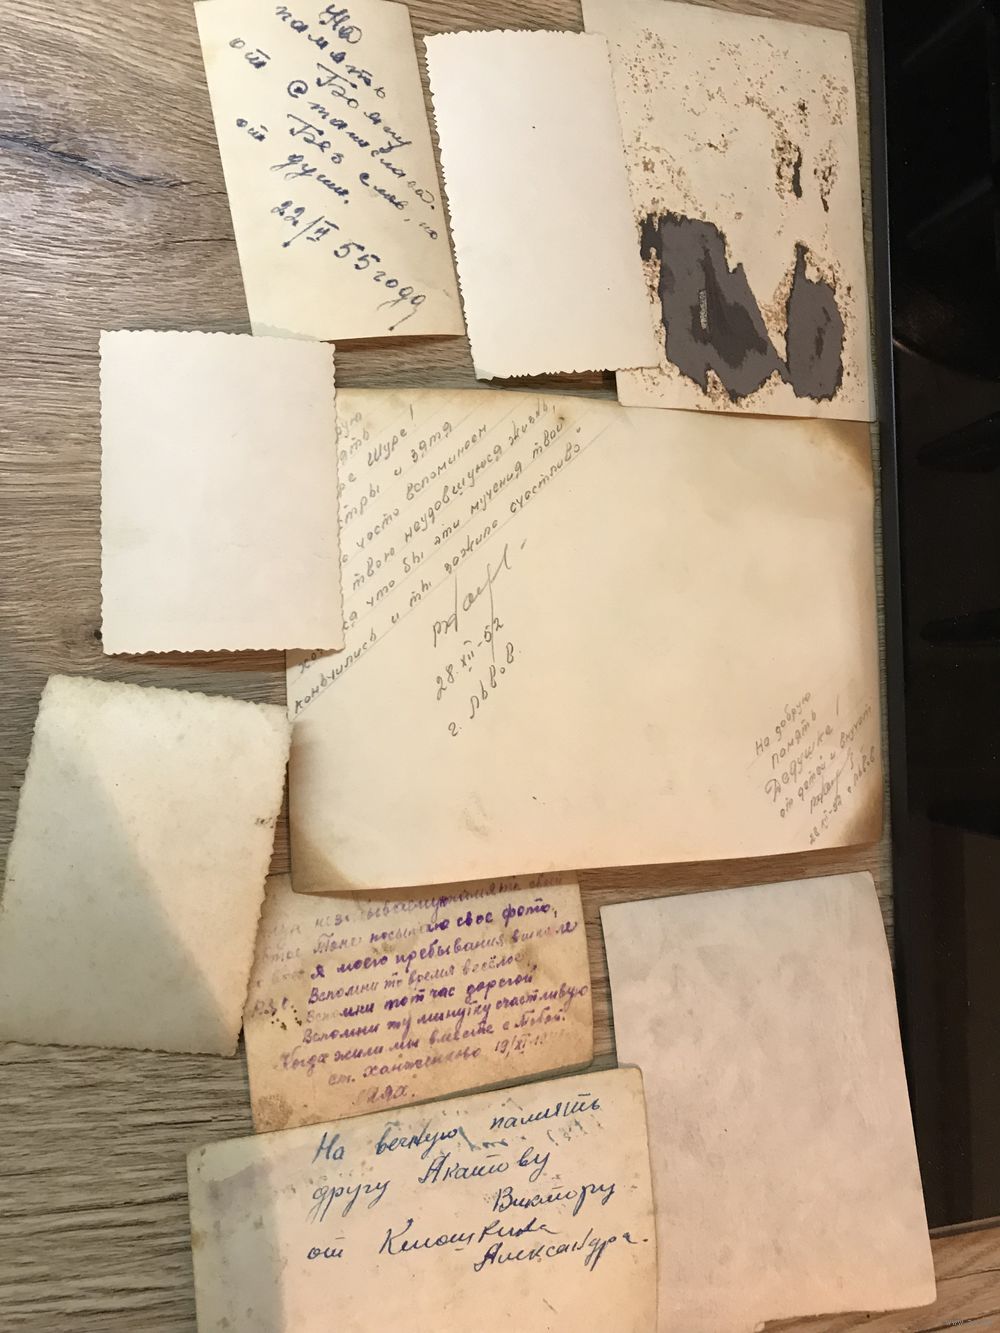 На
память
от
Станислава.
Без слов, но
от души.
22/II 55 году
рую
ять
ре Шуре!
тры и зятя
часто вспоминаем
твою неудавшуюся жизнь,
ся что бы эти мучения твои
кончились и ты зажила счастливо
28.XII-52
г. Львов.
На добрую
память
Дедушке!
от детей и внучат
28.XII-52 г. Львов
Тоне посылаю свое фото,
я моего пребывания в школе
Вспомни то время весёлое,
Вспомни тот час дорогой,
Вспомни ту минутку счастливую
Когда жили мы вместе с тобой.
ст. Ханженково 19/XI-
На вечную память
другу Акатову
Виктору
от
Александра.